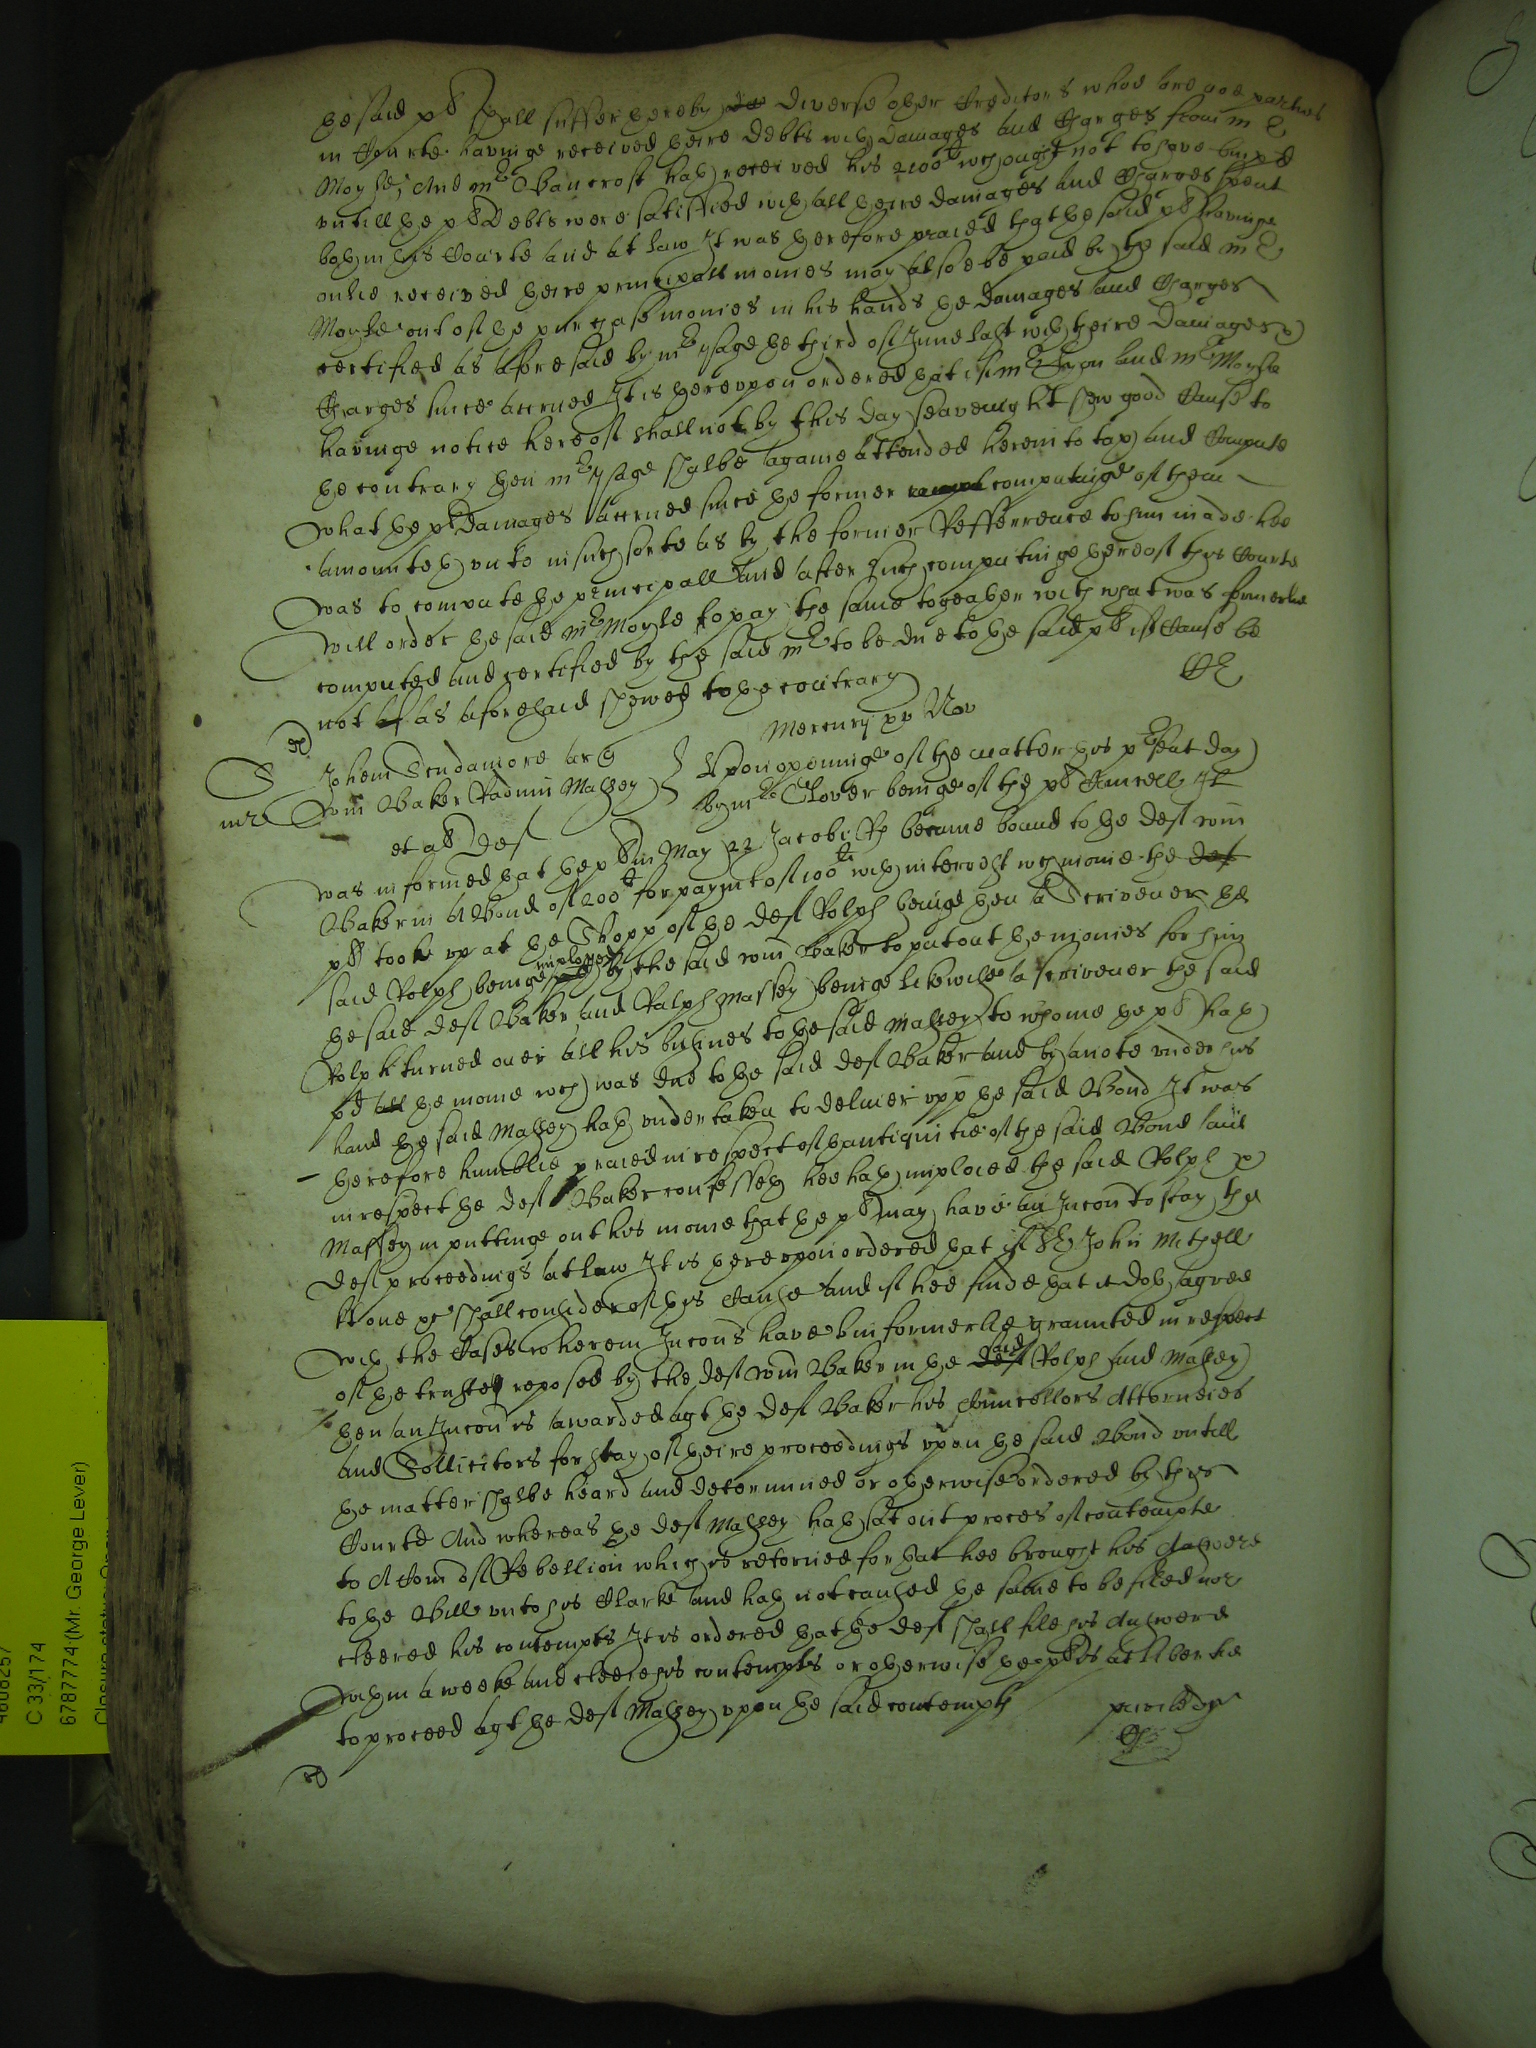 the said plt shall suffer thereby diverse other Creditors whoe are noe parties
in Courte havinge received theire debts with damages and Charges from mr
Moyse, And mr Bancroft hath received his 2100li wch ought not to have bin pd
untill the plts debts were satisfied with all theire damages and Charges spent
both in this Courte and at law It was therefore praied that the said plt havinge
onlie received theire principall monies may alsoe be paid by the said mr
Moyse out of the purchase monies in his hands the damages and Charges
certified as aforesaid by mr Page the third of June last with theire damages &
Charges since accrued It is thereupon ordered that if mr and mr Moyse
havinge notice hereof shall not by this day seavenight shew good Cause to
the contrary then mr Page shalbe againe attended herein to tax and Compute
what the plts damages accrued since the former computinge of them
amounteth unto in such sorte as by the former Refferrence to him made hee
was to compute the principall and after such computinge thereof this Courte
will order the said mr Moyse to pay the same togeather with what was formerlie
computed and certified by the said mr to be due to the said plt if Cause be
not as aforesaid shewed to the contrary
Mercurij xv Nov
Johem Scudamore ar
Wm Baker Radum Massey
et al Def
Upon openinge of the matter this present day
by mr Clover beinge of the plts Councell It
was informed that the plt in May 22 Jacobi R became bound to the deft wm
Baker in a Bond of 200li for paymt of 100li with interrest wch monie the def
plt tooke up at the Shopp of the deft Rolph beinge then a Scrivener the
said Rolph beinge imployed by the said wm Baker to put out the monies for him
the said deft Baker and Ralph Massey beinge likewise a scrivener the said
Rolph turned over all his busines to the said Massey to whome the plt hath
pd all the monie wch was due to the said deft Baker and by a note under his
hand the said Massey hath undertaken to deliver upp the said Bond It was
therefore humblie praied in respect of thantiquitie of the said Bond and
in respect the deft Baker confesseth hee hath imploied the said Rolph &
Massey in puttinge out his monie that the plt may have an Iniuncon to stay the
defts proceedings at law It is thereupon ordered that if Sr John Mitchell
kt one &c shall consider of this Cause and if hee finde that it doth agree
with the Cases wherein Iniuncons have bin formerlie graunted in respect
of the trust reposed by the deft wm Baker in the said Rolph and Massey
then an Iniuncon is awarded agt the deft Baker his Councellors Attorneies
and Sollicitors for stay of theire proceedings upon the said Bond untill
the matter shalbe heard and determined or otherwise ordered by this
Courte And whereas the deft Massey hath sat out proces of contempte
to A Com of Rebellion which is retorned for that hee brought his Answere
to the Bill unto his Clarke and hath not caused the same to be filed nor
cleered his contempts It is ordered that the deft shall file his Answere
within a weeke and cleere his contempts or otherwise the plt is at libertie
to proceed agt the deft Massey upon the said contempts
4608257
C 33/174
6787774 (Mr. George Lever)